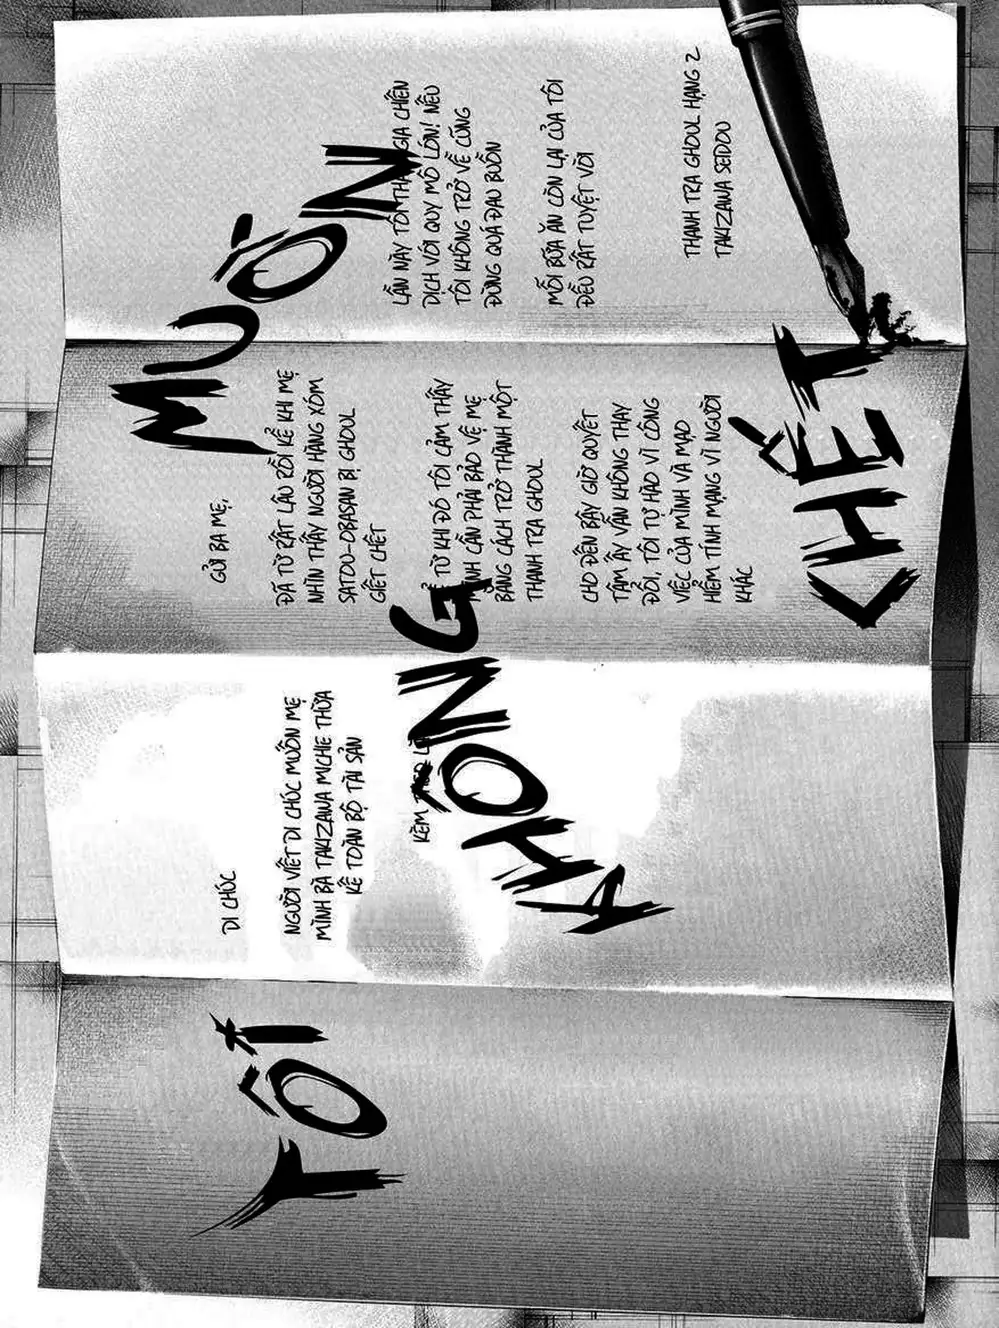 TÔI
KHÔNG
MUỐN
CHẾT
DI CHÚC
NGƯỜI VIẾT DI CHÚC MUỐN MẸ
MÌNH BÀ TAKIZAWA MICHIE THỪA
KẾ TOÀN BỘ TÀI SẢN
KÈM
GỬI BA MẸ,
ĐÃ TỪ RẤT LÂU RỒI KỂ KHI MẸ
NHÌN THẤY NGƯỜI HÀNG XÓM
SATOU-OBASAN BỊ GHOUL
GIẾT CHẾT
TỪ KHI ĐÓ TÔI CẢM THẤY
MÌNH CẦN PHẢI BẢO VỆ MẸ
BẰNG CÁCH TRỞ THÀNH MỘT
THANH TRA GHOUL
CHO ĐẾN BÂY GIỜ QUYẾT
TÂM ẤY VẪN KHÔNG THAY
ĐỔI, TÔI TỰ HÀO VÌ CÔNG
VIỆC CỦA MÌNH VÀ MẠO
HIỂM TÍNH MẠNG VÌ NGƯỜI
KHÁC
LẦN NÀY TÔI THAM GIA CHIẾN
DỊCH VỚI QUY MÔ LỚN! NẾU
TÔI KHÔNG TRỞ VỀ CŨNG
ĐỪNG QUÁ ĐAU BUỒN
MỖI BỮA ĂN CÒN LẠI CỦA TÔI
ĐỀU RẤT TUYỆT VỜI
THANH TRA GHOUL HẠNG 2
TAKIZAWA SEIDOU